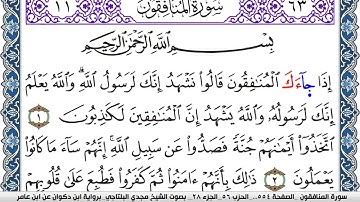 ٦٣ سُورَةُ المُنَافِقُونَ ٢٨
بِسْمِ اللَّهِ الرَّحْمَٰنِ الرَّحِيمِ
إِذَا جَآءَكَ الْمُنَافِقُونَ قَالُوا نَشْهَدُ إِنَّكَ لَرَسُولُ اللَّهِ وَاللَّهُ يَعْلَمُ
إِنَّكَ لَرَسُولُهُ وَاللَّهُ يَشْهَدُ إِنَّ الْمُنَافِقِينَ لَكَاذِبُونَ ١
اتَّخَذُوا أَيْمَانَهُمْ جُنَّةً فَصَدُّوا عَن سَبِيلِ اللَّهِ إِنَّهُمْ سَآءَ مَا كَانُوا
يَعْمَلُونَ ٢ ذَٰلِكَ بِأَنَّهُمْ ءَامَنُوا ثُمَّ كَفَرُوا فَطُبِعَ عَلَىٰ قُلُوبِهِمْ
سورة المنافقون الصفحة ٥٥٤ الحزب ٥٦ الجزء ٢٨ بصوت الشيخ مجدي البلتاجي برواية ابن ذكوان عن ابن عامر